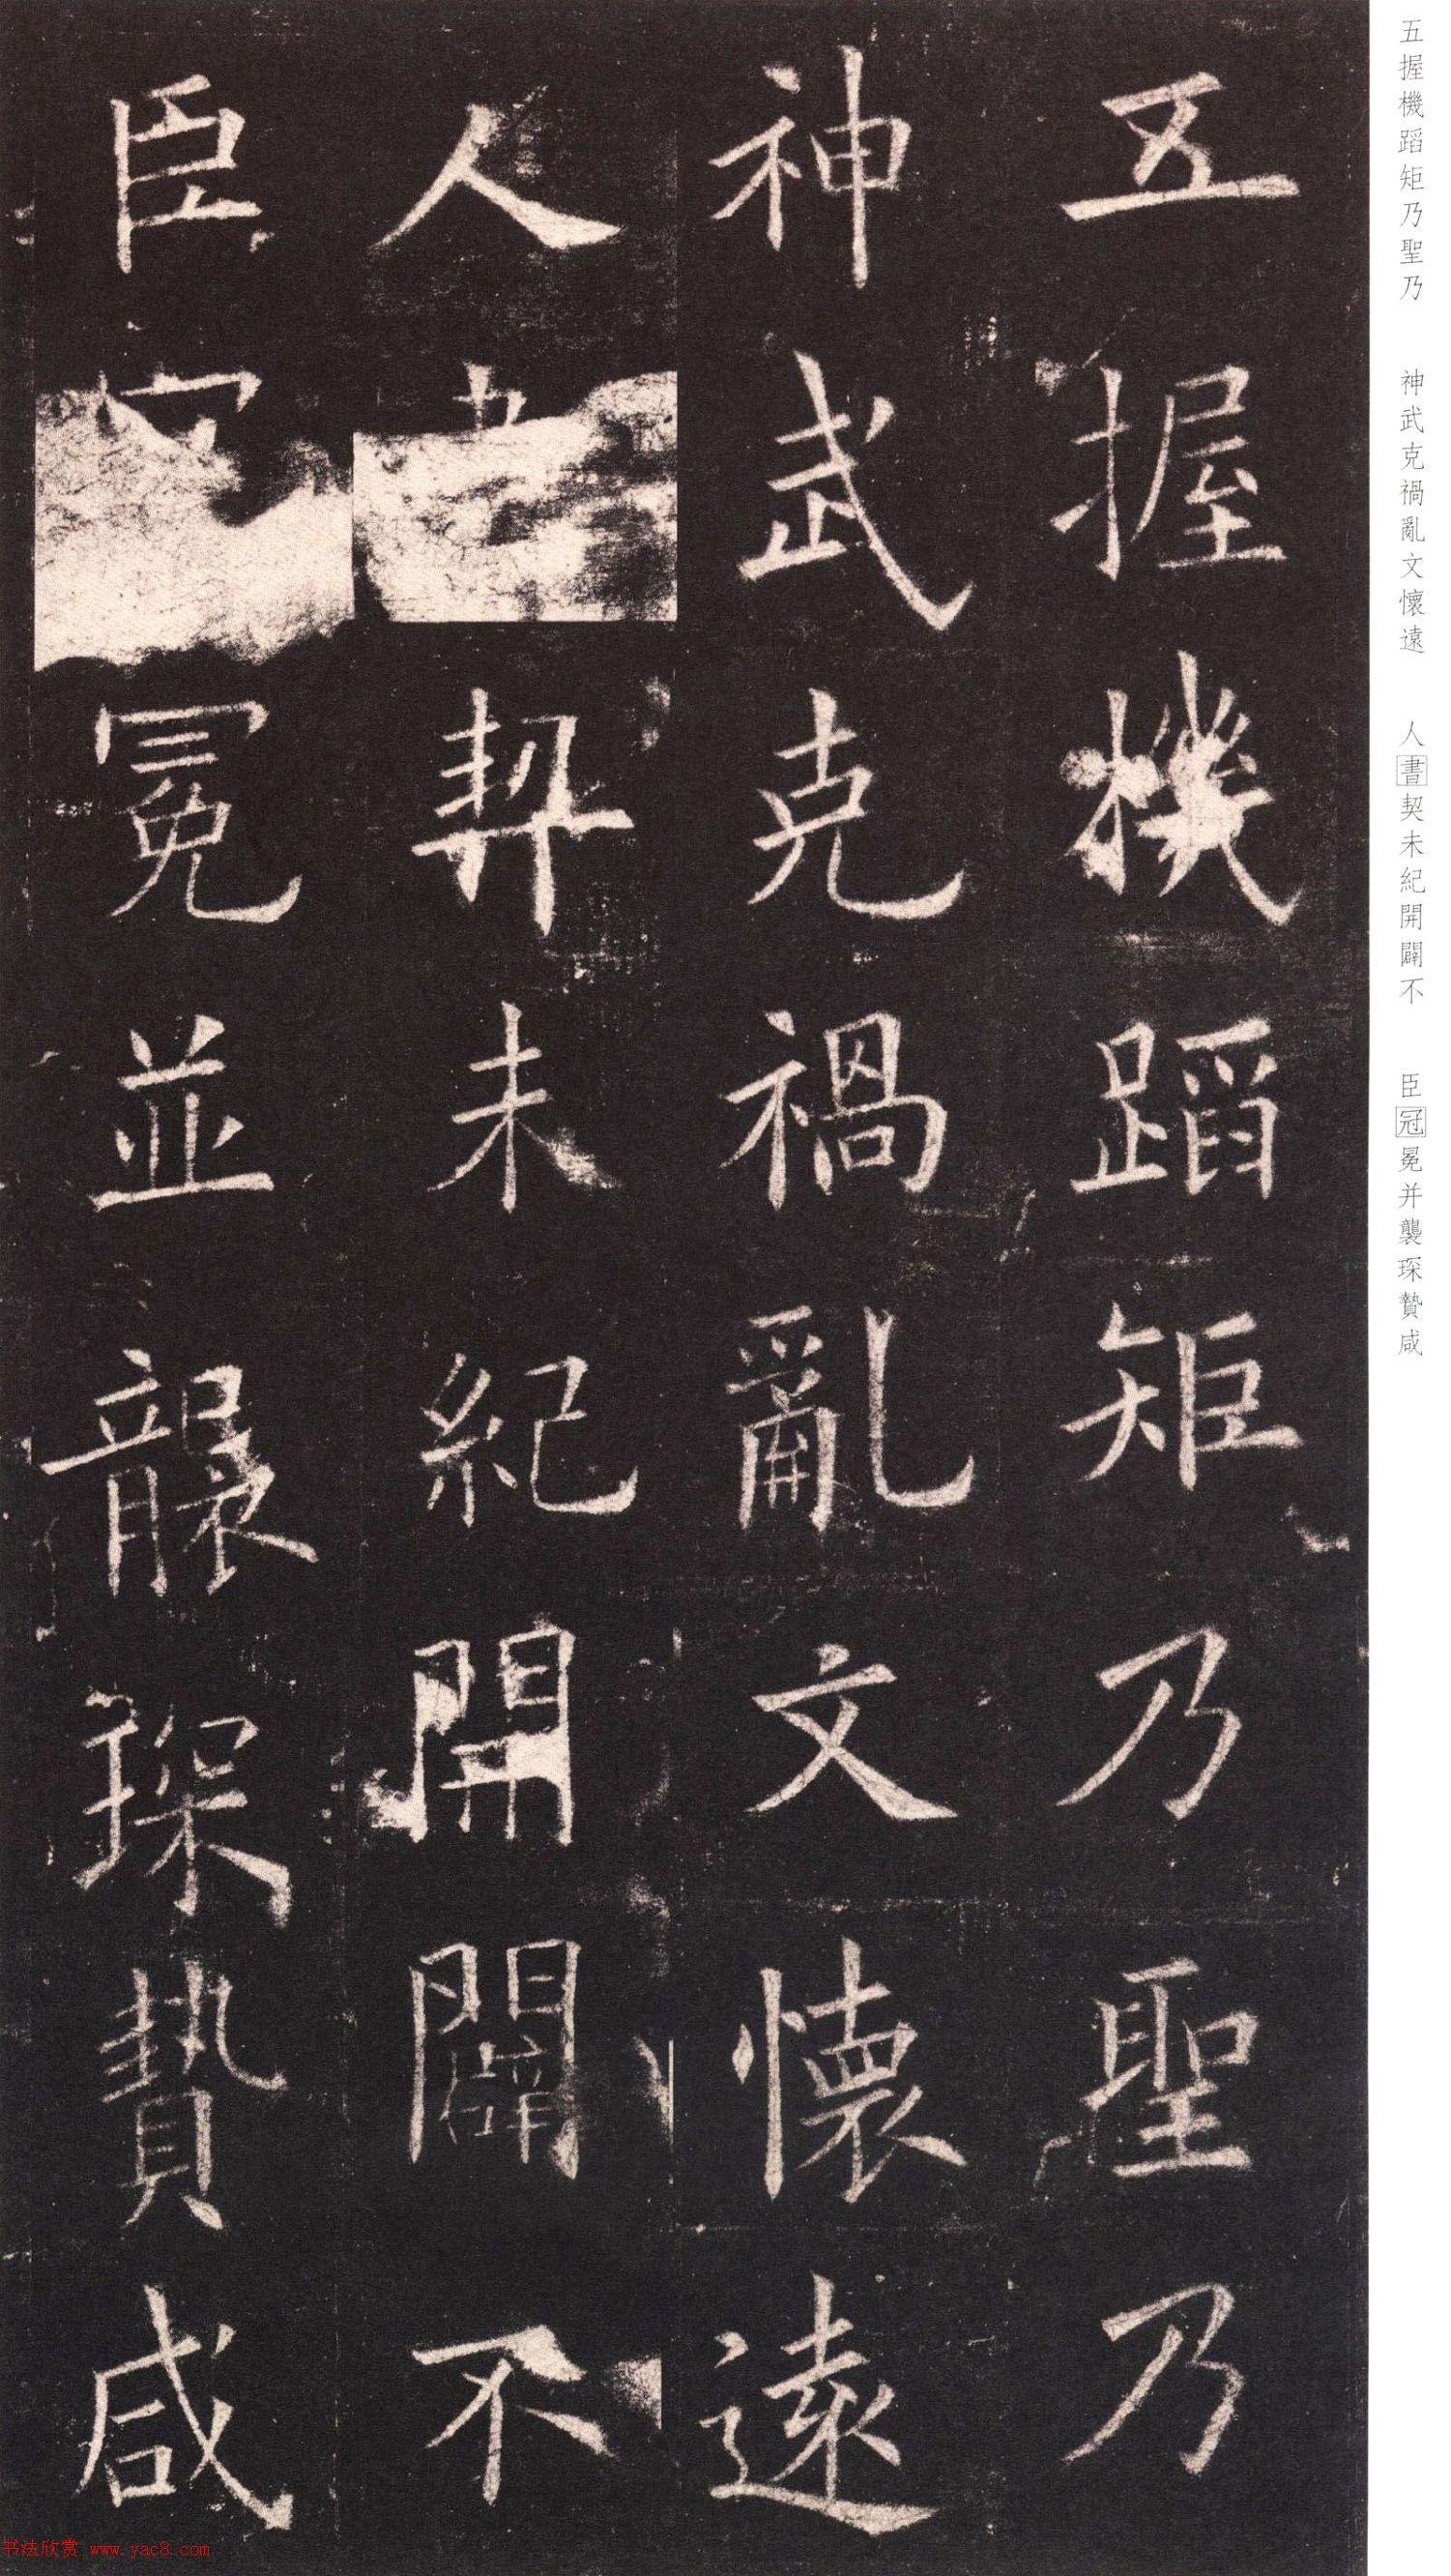 五握機蹈矩乃聖乃
神武克禍亂文懷遠
人書契未紀開闢不
臣冠冕並襲琛贄咸
五握機蹈矩乃聖乃 神武克禍亂文懷遠 人書契未紀開闢不 臣冠冕并襲琛贄咸
书法欣赏 www.yac8.com